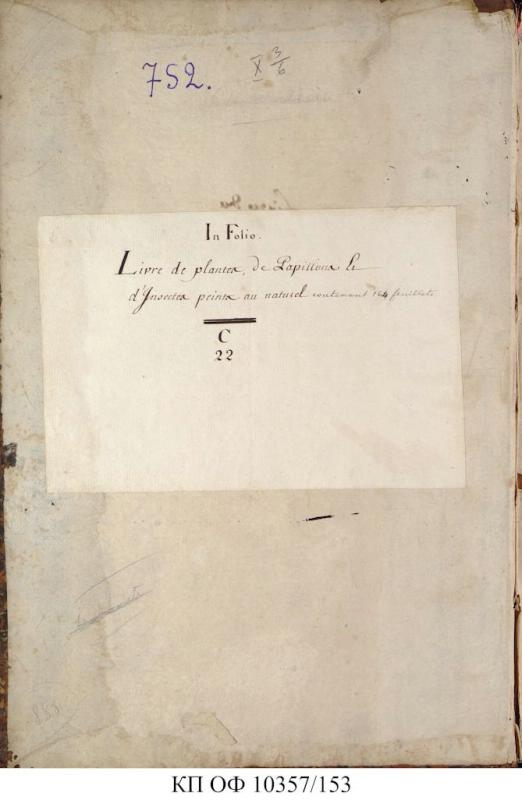 752.
X 3/6
In Folio.
Livre de plantes, de Papillons &
d'Insectes peints au naturel contenant 164 feuillets
C
22
КП ОФ 10357/153